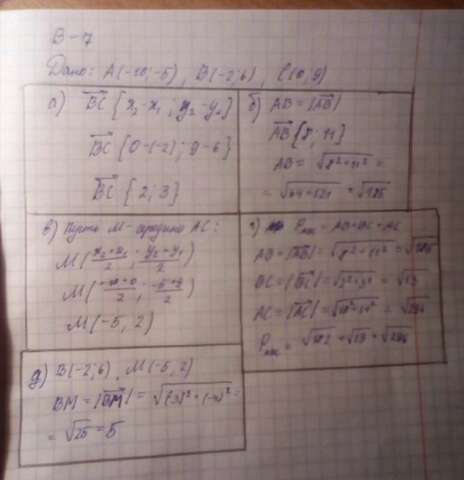 В-17
Дано: A(-10;-5), B(-2;6), C(0;9)
а) BC {x₂-x₁; y₂-y₁}
BC {0-(-2); 9-6}
BC {2; 3}
б) AB = |AB|
AB {8; 11}
AB = √8²+11² =
= √64+121 = √185
в) Пусть M - середина AC:
M(x₂+x₁/2; y₂+y₁/2)
M(-10+0/2; -5+9/2)
M(-5, 2)
г) P = AB+BC+AC
AB = |AB| = √8²+11² = √185
BC = |BC| = √2²+3² = √13
AC = |AC| = √10²+14² = √296
P = + √13 +
д) B(-2;6), M(-5, 2)
BM = |BM| = √(-3)²+(-4)² =
= √25 = 5